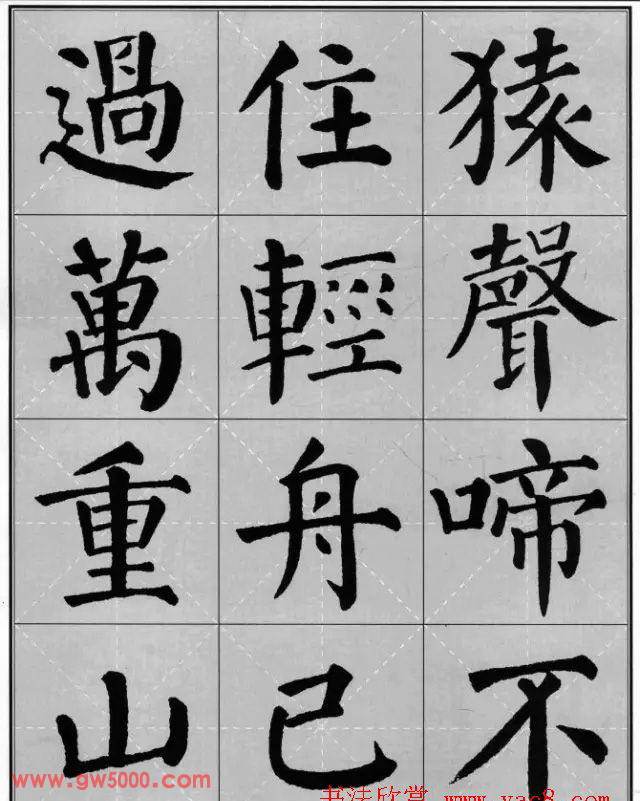 猿聲啼不
住輕舟已
過萬重山
www.gw5000.com
书法欣赏 www.yac8.com